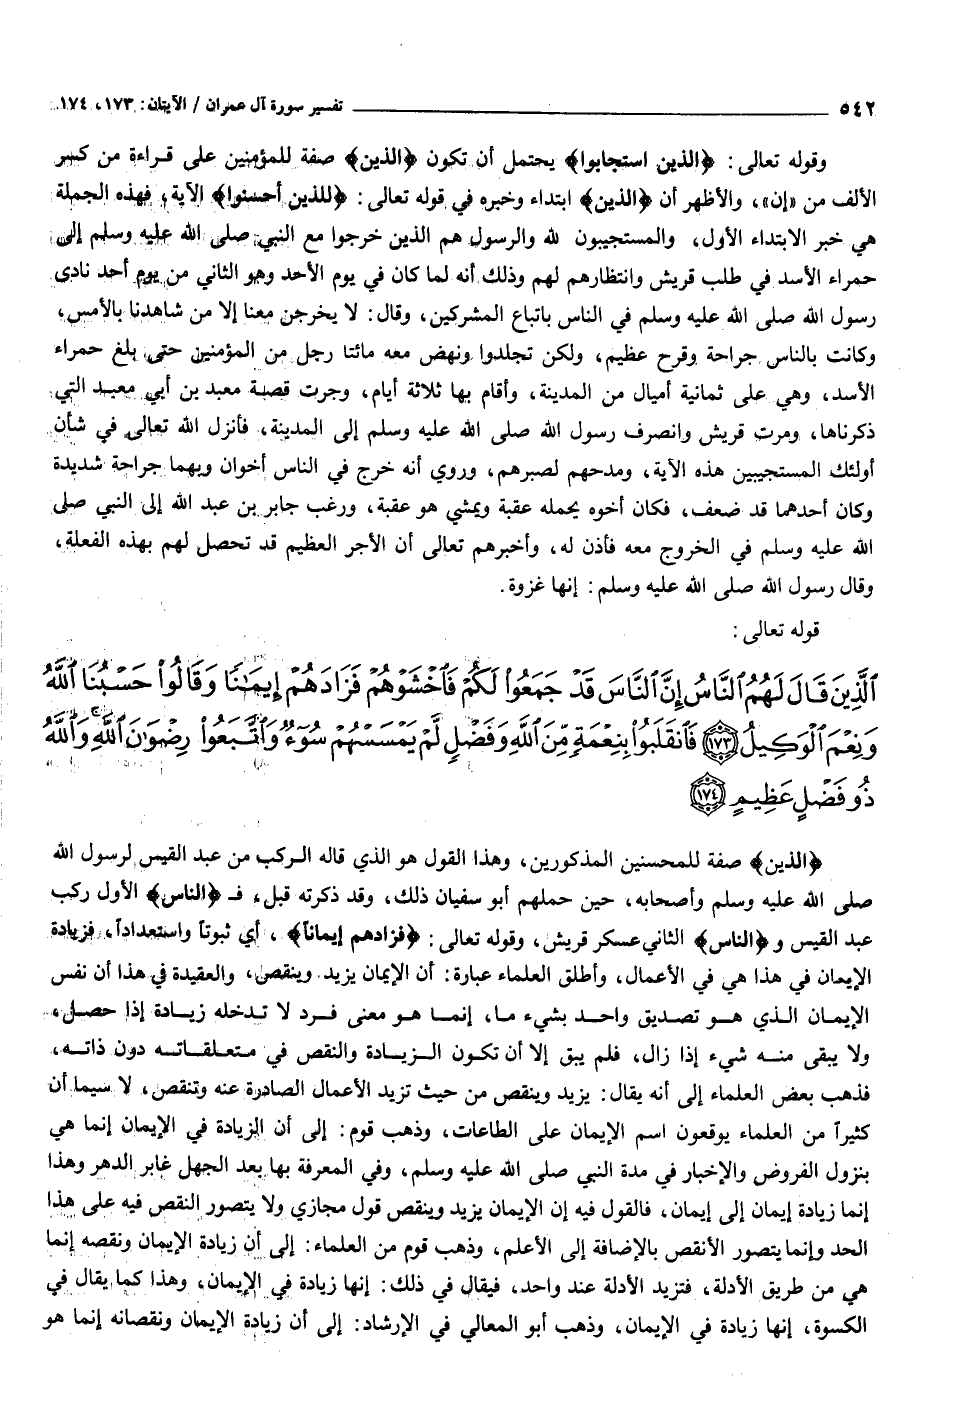 ٥٤٢ تفسير سورة آل عمران / الآيتان: ١٧٣، ١٧٤
وقوله تعالى: ﴿الذين استجابوا﴾ يحتمل أن تكون ﴿الذين﴾ صفة للمؤمنين على قراءة من كسر
الألف من «إن»، والأظهر أن ﴿الذين﴾ ابتداء وخبره في قوله تعالى: ﴿للذين أحسنوا﴾ الآية، فهذه الجملة
هي خبر الابتداء الأول، والمستجيبون لله والرسول هم الذين خرجوا مع النبي صلى الله عليه وسلم إلى
حمراء الأسد في طلب قريش وانتظارهم لهم وذلك أنه لما كان في يوم الأحد وهو الثاني من يوم أحد نادى
رسول الله صلى الله عليه وسلم في الناس باتباع المشركين، وقال: لا يخرجن معنا إلا من شاهدنا بالأمس،
وكانت بالناس جراحة وقرح عظيم، ولكن تجلدوا ونهض معه مائتا رجل من المؤمنين حتى بلغ حمراء
الأسد، وهي على ثمانية أميال من المدينة، وأقام بها ثلاثة أيام، وجرت قصة معبد بن أبي معبد التي
ذكرناها، ومرت قريش وانصرف رسول الله صلى الله عليه وسلم إلى المدينة، فأنزل الله تعالى في شأن
أولئك المستجيبين هذه الآية، ومدحهم لصبرهم، وروي أنه خرج في الناس أخوان وبهما جراحة شديدة
وكان أحدهما قد ضعف، فكان أخوه يحمله عقبة ويمشي هو عقبة، ورغب جابر بن عبد الله إلى النبي صلى
الله عليه وسلم في الخروج معه فأذن له، وأخبرهم تعالى أن الأجر العظيم قد تحصل لهم بهذه الفعلة،
وقال رسول الله صلى الله عليه وسلم: إنها غزوة.
قوله تعالى:
ٱلَّذِينَ قَالَ لَهُمُ ٱلنَّاسُ إِنَّ ٱلنَّاسَ قَدْ جَمَعُوا۟ لَكُمْ فَٱخْشَوْهُمْ فَزَادَهُمْ إِيمَٰنًا وَقَالُوا۟ حَسْبُنَا ٱللَّهُ
وَنِعْمَ ٱلْوَكِيلُ ﴿١٧٣﴾ فَٱنقَلَبُوا۟ بِنِعْمَةٍ مِّنَ ٱللَّهِ وَفَضْلٍ لَّمْ يَمْسَسْهُمْ سُوٓءٌ وَٱتَّبَعُوا۟ رِضْوَٰنَ ٱللَّهِ وَٱللَّهُ
ذُو فَضْلٍ عَظِيمٍ ﴿١٧٤﴾
﴿الذين﴾ صفة للمحسنين المذكورين، وهذا القول هو الذي قاله الركب من عبد القيس لرسول الله
صلى الله عليه وسلم وأصحابه، حين حملهم أبو سفيان ذلك، وقد ذكرته قبل، فـ ﴿الناس﴾ الأول ركب
عبد القيس و ﴿الناس﴾ الثاني عسكر قريش، وقوله تعالى: ﴿فزادهم إيماناً﴾، أي ثبوتاً واستعداداً، فزيادة
الإيمان في هذا هي في الأعمال، وأطلق العلماء عبارة: أن الإيمان يزيد وينقص، والعقيدة في هذا أن نفس
الإيمان الذي هو تصديق واحد بشيء ما، إنما هو معنى فرد لا تدخله زيادة إذا حصل،
ولا يبقى منه شيء إذا زال، فلم يبق إلا أن تكون الزيادة والنقص في متعلقاته دون ذاته،
فذهب بعض العلماء إلى أنه يقال: يزيد وينقص من حيث تزيد الأعمال الصادرة عنه وتنقص، لا سيما أن
كثيراً من العلماء يوقعون اسم الإيمان على الطاعات، وذهب قوم: إلى أن الزيادة في الإيمان إنما هي
بنزول الفروض والإخبار في مدة النبي صلى الله عليه وسلم، وفي المعرفة بها بعد الجهل غابر الدهر وهذا
إنما زيادة إيمان إلى إيمان، فالقول فيه إن الإيمان يزيد وينقص قول مجازي ولا يتصور النقص فيه على هذا
الحد وإنما يتصور الأنقص بالإضافة إلى الأعلم، وذهب قوم من العلماء: إلى أن زيادة الإيمان ونقصه إنما
هي من طريق الأدلة، فتزيد الأدلة عند واحد، فيقال في ذلك: إنها زيادة في الإيمان، وهذا كما يقال في
الكسوة، إنها زيادة في الإيمان، وذهب أبو المعالي في الإرشاد: إلى أن زيادة الإيمان ونقصانه إنما هو